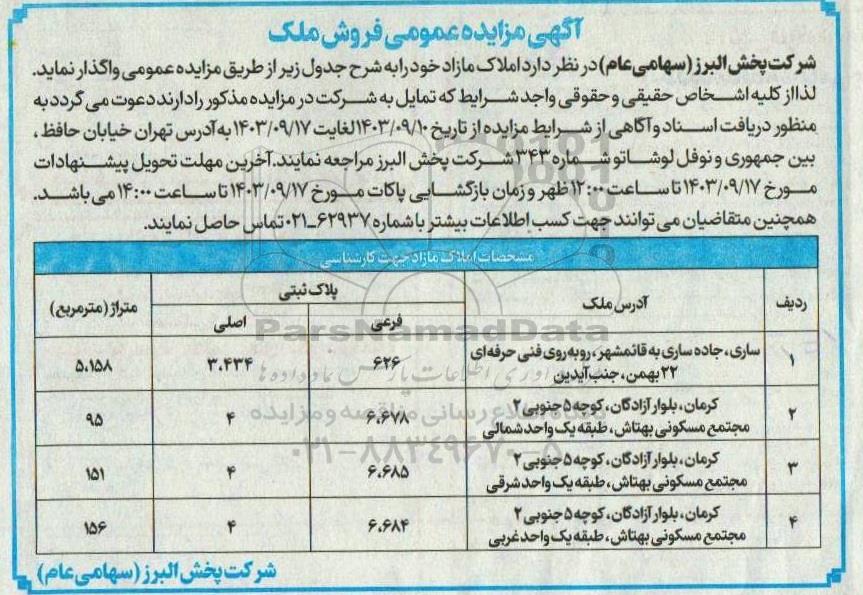 آگهی مزایده عمومی فروش ملک
شرکت پخش البرز (سهامی عام) در نظر دارد املاک مازاد خود را به شرح جدول زیر از طریق مزایده عمومی واگذار نماید.
لذا از کلیه اشخاص حقیقی و حقوقی واجد شرایط که تمایل به شرکت در مزایده مذکور را دارند دعوت می گردد به
منظور دریافت اسناد و آگاهی از شرایط مزایده از تاریخ ۱۴۰۳/۰۹/۱۰ لغایت ۱۴۰۳/۰۹/۱۷ به آدرس تهران خیابان حافظ،
بین جمهوری و نوفل لوشاتو شماره ۳۴۳ شرکت پخش البرز مراجعه نمایند. آخرین مهلت تحویل پیشنهادات
مورخ ۱۴۰۳/۰۹/۱۷ تا ساعت ۱۲:۰۰ ظهر و زمان بازگشایی پاکات مورخ ۱۴۰۳/۰۹/۱۷ تا ساعت ۱۴:۰۰ می باشد.
همچنین متقاضیان می توانند جهت کسب اطلاعات بیشتر با شماره ۶۲۹۳۷-۰۲۱ تماس حاصل نمایند.
مشخصات املاک مازاد جهت کارشناسی
ردیف آدرس ملک پلاک ثبتی متراژ (مترمربع)
فرعی اصلی
۱ ساری، جاده ساری به قائمشهر، روبه روی فنی حرفه ای ۶۲۶ ۳،۴۳۴ ۵،۱۵۸
۲۲ بهمن، جنب آیدین
۲ کرمان، بلوار آزادگان، کوچه ۵ جنوبی ۲ ۶،۶۷۸ ۴ ۹۵
مجتمع مسکونی بهتاش، طبقه یک واحد شمالی
۳ کرمان، بلوار آزادگان، کوچه ۵ جنوبی ۲ ۶،۶۸۵ ۴ ۱۵۱
مجتمع مسکونی بهتاش، طبقه یک واحد شرقی
۴ کرمان، بلوار آزادگان، کوچه ۵ جنوبی ۲ ۶،۶۸۴ ۴ ۱۵۶
مجتمع مسکونی بهتاش، طبقه یک واحد غربی
شرکت پخش البرز (سهامی عام)
ParsNamadData
پایگاه اطلاع رسانی مناقصه و مزایده
۰۲۱-۸۸۳۴۹۶۷۰-۵